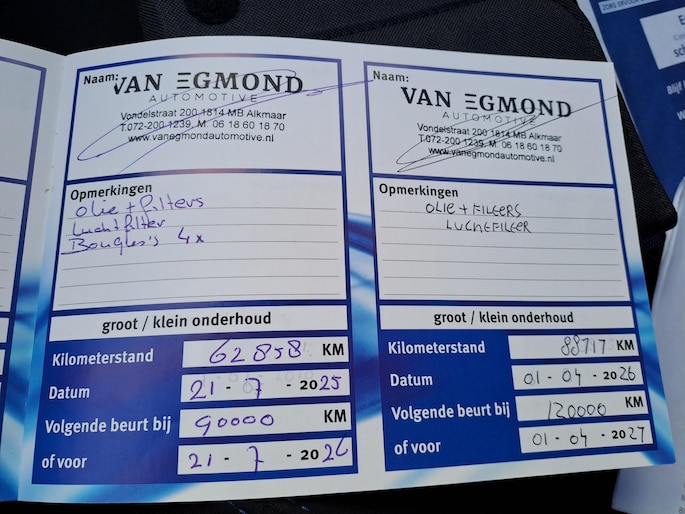 Naam: VAN EGMOND
AUTOMOTIVE
Vondelstraat 200 1814 MB Alkmaar
T.072-200 1239, M. 06 18 60 18 70
www.vanegmondautomotive.nl
Opmerkingen
olie + filters
Luchtfilter
Bougies's 4x
groot / klein onderhoud
Kilometerstand 62858 KM
Datum 21 - 7 - 2025
Volgende beurt bij 90000 KM
of voor 21 - 7 - 2026
Naam:
VAN EGMOND
AUTOMOTIVE
Vondelstraat 200 1814 MB Alkmaar
T.072-200 1239, M. 06 18 60 18 70
www.vanegmondautomotive.nl
Opmerkingen
OLIE + FILTERS
LUCHTFILTER
groot / klein onderhoud
Kilometerstand 88717 KM
Datum 01 - 04 - 2026
Volgende beurt bij 120000 KM
of voor 01 - 04 - 2027